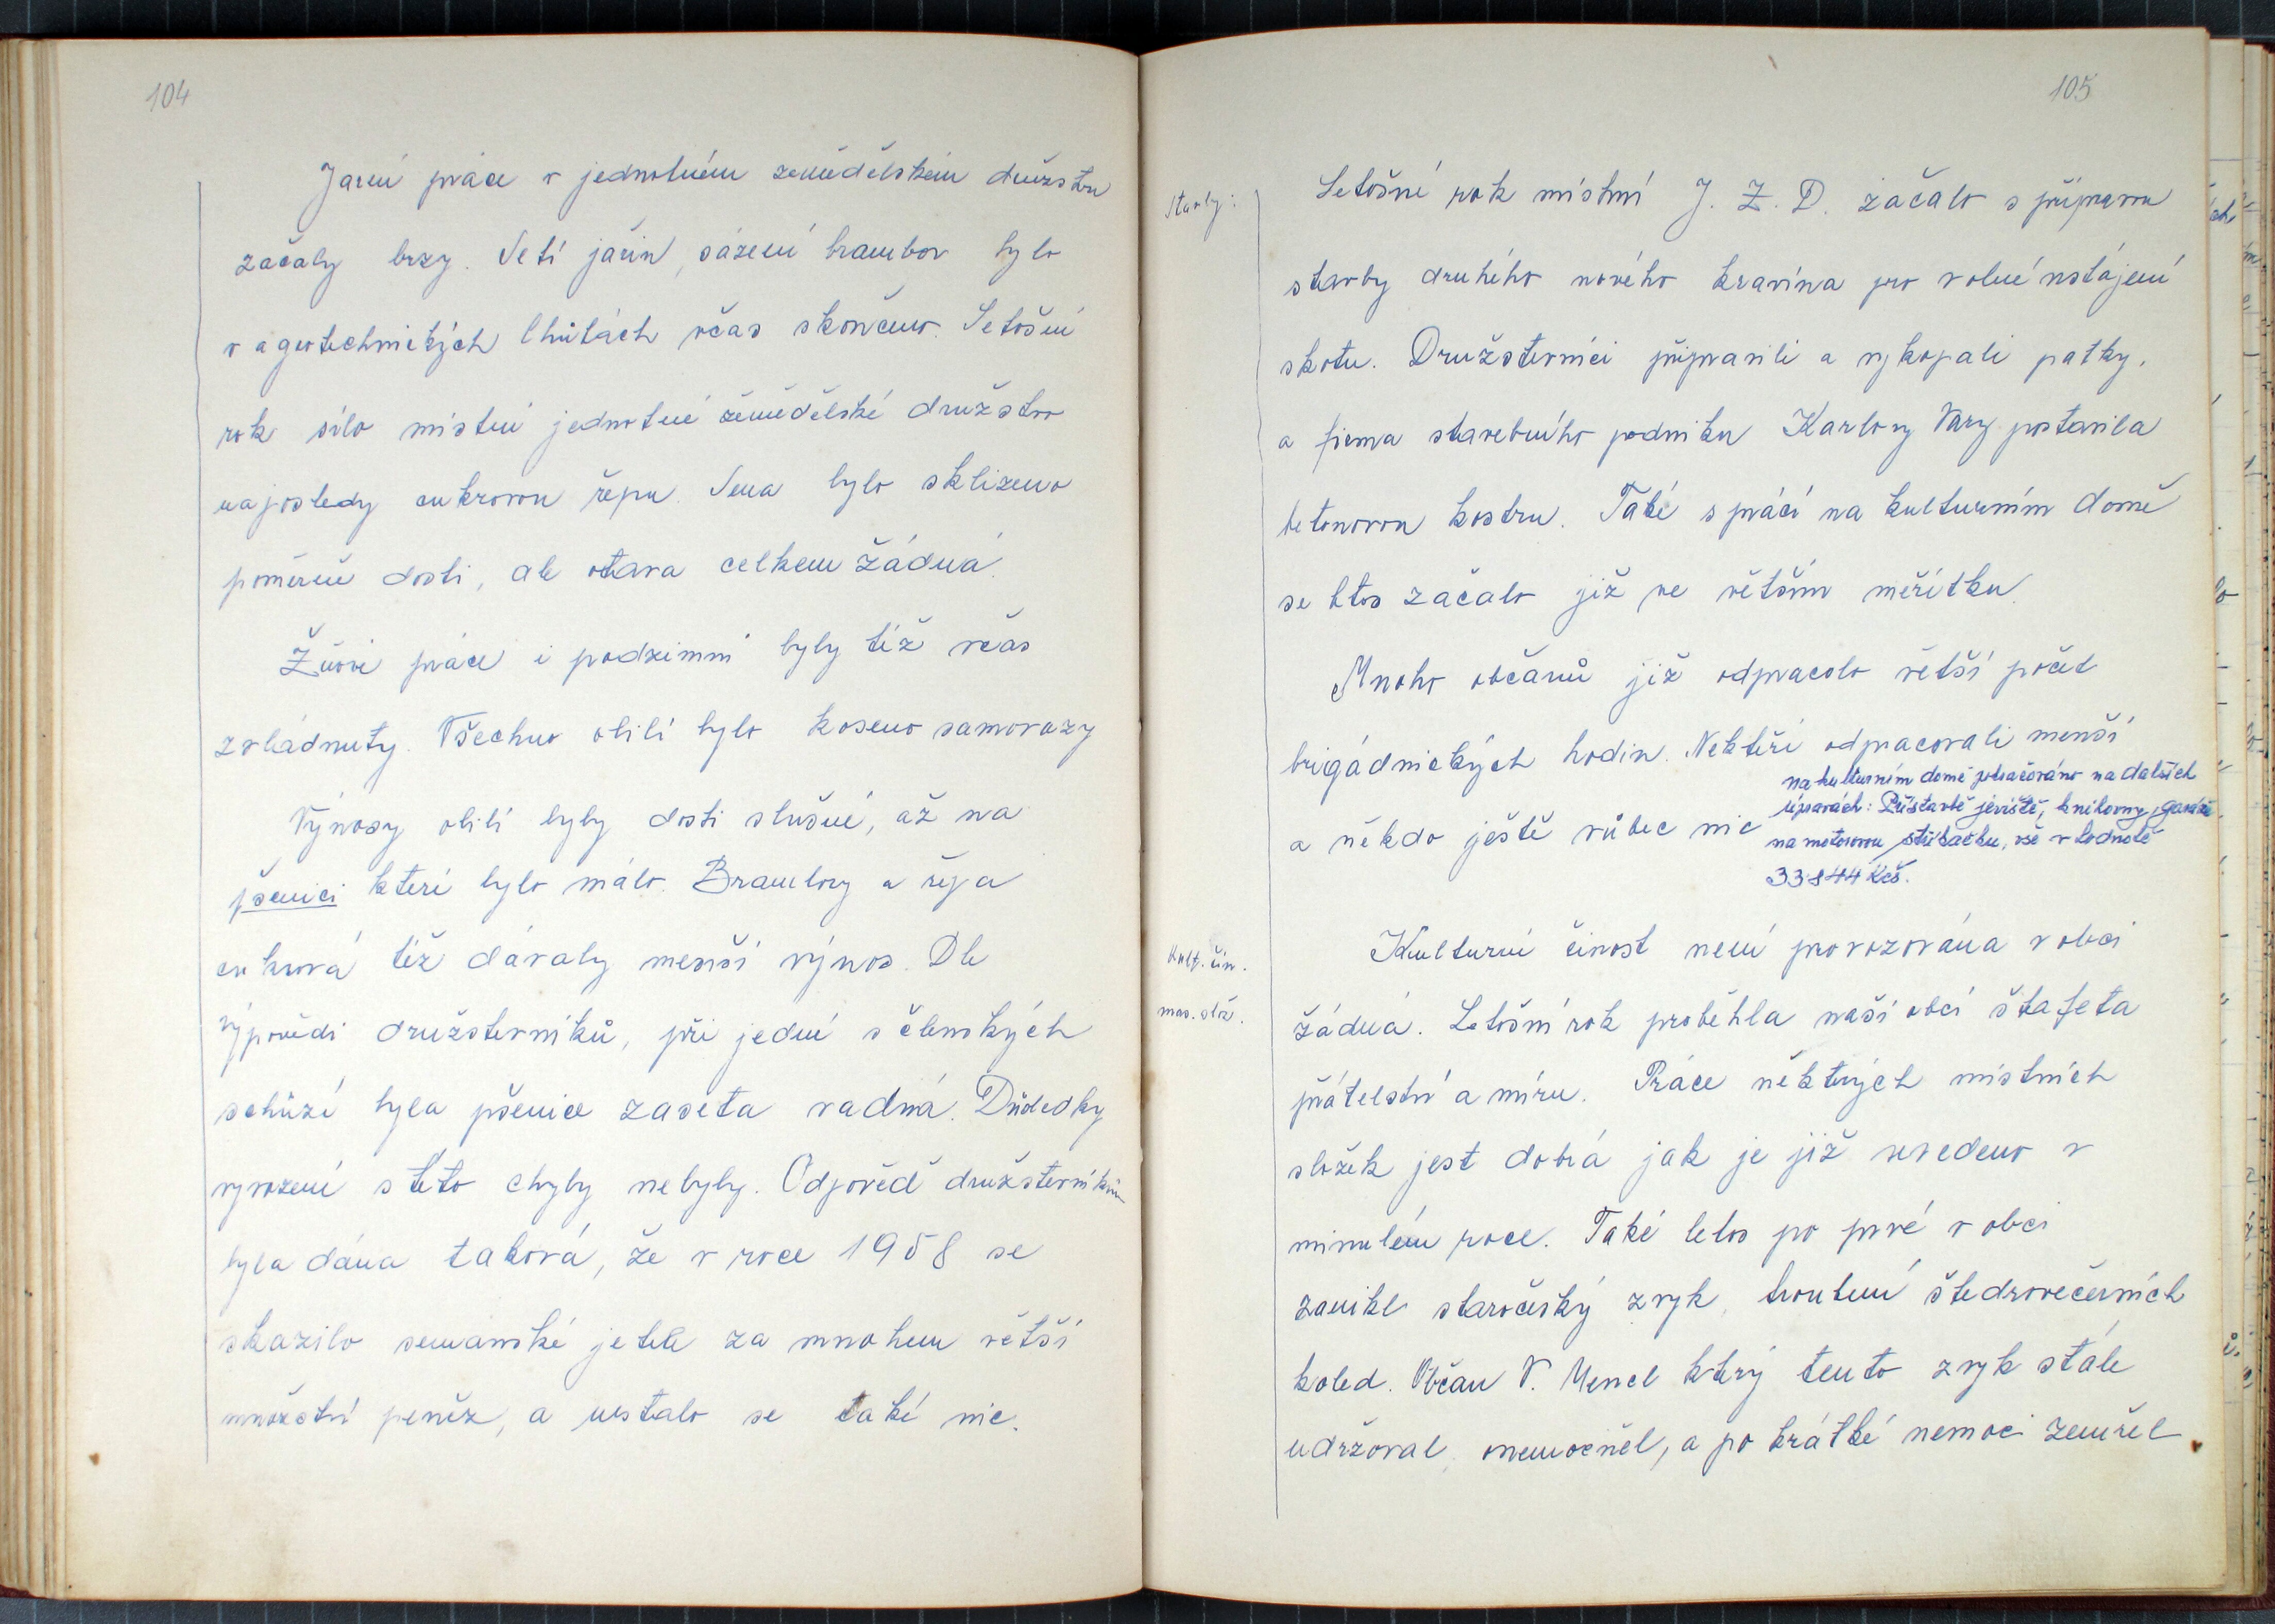 104
Jarní práce v jednotném zemědělském družstvu
začaly brzy. Setí jařin, sázení brambor bylo
v agrotechnických lhůtách včas skončeno. Letošní
rok silo místní jednotné zemědělské družstvo
naposledy cukrovou řepu. Sena bylo sklizeno
poměrně dosti, ale otava celkem žádná.
Žňové práce i podzimní byly též včas
zvládnuty. Všechno obilí bylo koseno samovazy
Výnosy obilí byly dosti slušné, až na
pšenici které bylo málo. Brambory a řepa
cukrová též dávaly menší výnos. Dle
výpovědi družstevníků, při jedné s členských
schůzí byla pšenice zaseta vadná. Důsledky
vyvození s této chyby nebyly. Odpověď družstevníkům
byla dána taková, že v roce 1958 se
zkazilo semanské jetele za mnohem větší
množství peněz, a nestalo se také nic.
105
Stavby:
Letošné rok místní J. Z. D. začalo s přípravou
stavby druhého nového kravína pro volné ustájení
skotu. Družstevníci připravili a vykopali patky,
a firma stavebního podniku Karlovy Vary postavila
betonovou kostru. Také s prácí na kulturním domě
se letos začalo již ve větším měřítku.
Mnoho občanů již odpracolo větší počet
brigádnických hodin. Nekteří odpracovali menší
a někdo ještě vůbec nic
na kulturním domě pokračováno na dalších
úpravách: Přístavbě jeviště, knihovny, garáže
na motorovou stříkačku, vše v hodnotě
33844 Kčs.
Kult. čin.
mas. slož.
Kulturní činost není provozována v obci
žádná. Letošní rok proběhla naší obcí štafeta
přátelství a míru. Práce některých místních
složek jest dobrá jak je již uvedeno v
minulém roce. Také letos po prvé v obci
zanikl staročeský zvyk, troubení štedrovečerních
koled. Občan V. Mencl který tento zvyk stále
udržoval, onemocněl, a po krátké nemoci zemřel